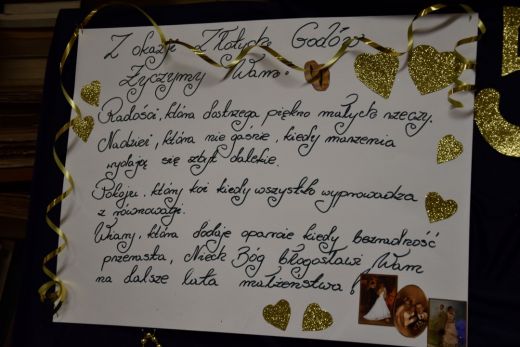 Z okazji Złotych Godów
Życzymy Wam:
Radości, która dostrzega piękno małych rzeczy.
Nadziei, która nie gaśnie, kiedy marzenia
wydają się zbyt dalekie.
Pokoju, który koi kiedy wszystko wyprowadza
z równowagi.
Wiary, która dodaje oparcie kiedy beznadność
przerasta, Niech Bóg błogosławi Wam
na dalsze lata małżeństwa!